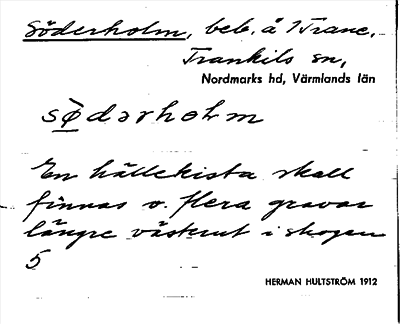 Söderholm, beb. å 1 Trane,
Trankils sn,
Nordmarks hd, Värmlands län
sødərholm
En hällekista skall
finnas o. flera gravar
längre västerut i skogen
5
HERMAN HULTSTRÖM 1912